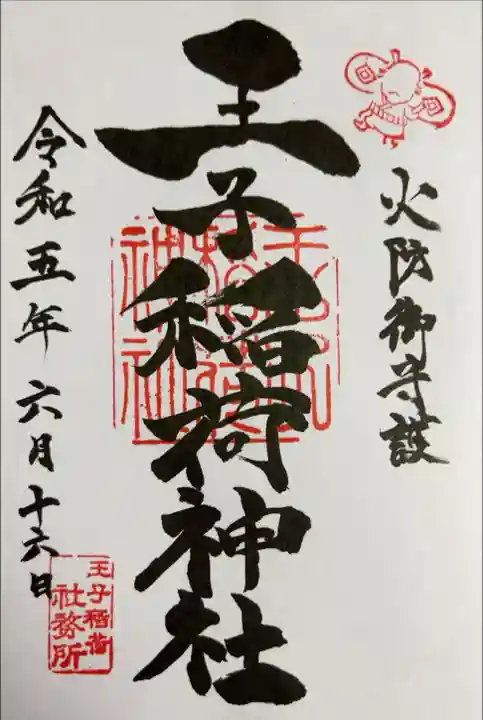 火防御守護
王子稲荷神社
王子稲荷神社
令和五年六月十六日
王子稲荷
社務所